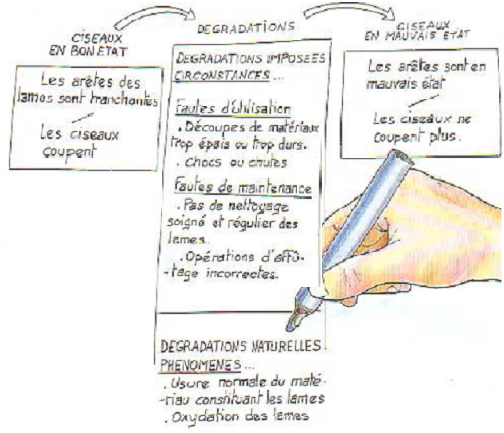 CISEAUX
EN BON ETAT
Les arêtes des
lames sont tranchantes
Les ciseaux
coupent
DEGRADATIONS
DEGRADATIONS IMPOSEES
CIRCONSTANCES...
Fautes d'utilisation
. Découpes de matériaux
trop épais ou trop durs.
. Chocs ou chutes
Fautes de maintenance
. Pas de nettoyage
soigné et régulier des
lames.
. Opérations d'affû-
-tage incorrectes.
DEGRADATIONS NATURELLES
PHENOMENES...
. Usure normale du maté-
-riau constituant les lames
. Oxydation des lames
CISEAUX
EN MAUVAIS ETAT
Les arêtes sont en
mauvais état
Les ciseaux ne
coupent plus.